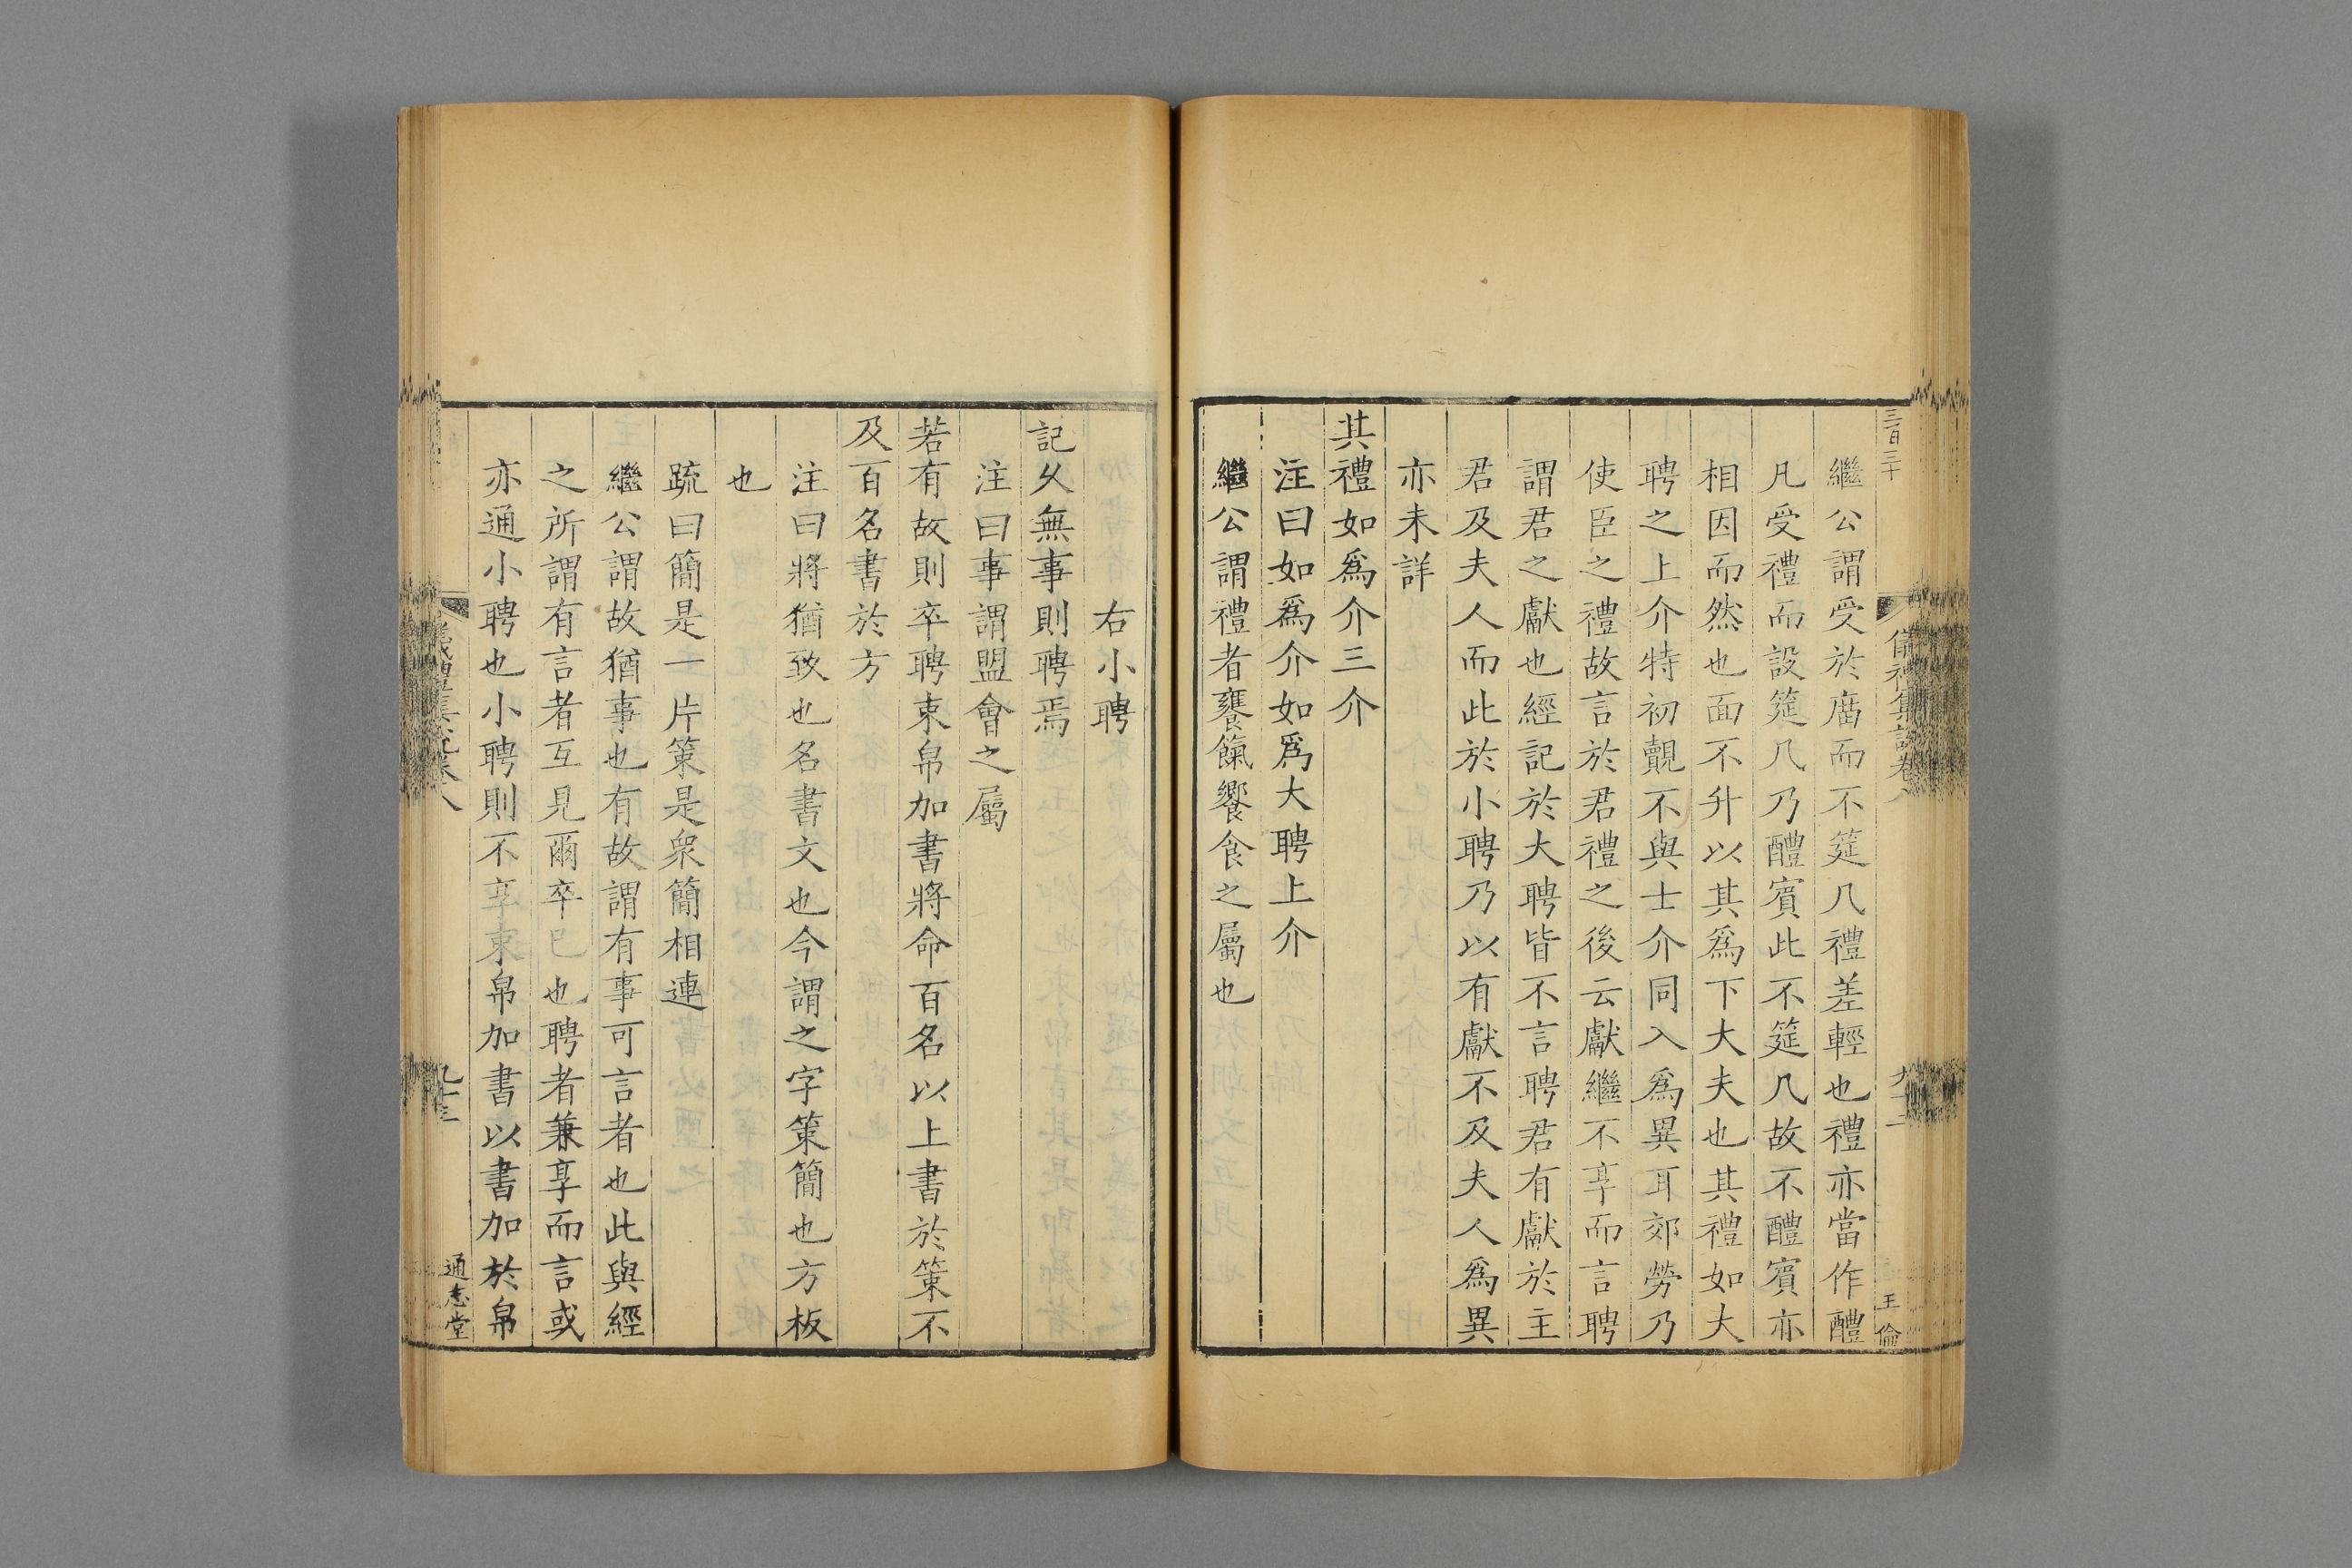 三百三十
儀禮集說卷八
王倫
繼公謂受於庿而不筵几禮差輕也禮亦當作醴
凡受禮而設筵几乃醴賓此不筵几故不醴賓亦
相因而然也面不升以其爲下大夫也其禮如大
聘之上介特初覿不與士介同入爲異耳郊勞乃
使臣之禮故言於君禮之後云獻繼不享而言聘
謂君之獻也經記於大聘皆不言聘君有獻於主
君及夫人而此於小聘乃以有獻不及夫人爲異
亦未詳
其禮如爲介三介
注曰如爲介如爲大聘上介
繼公謂禮者饔餼饗食之屬也
右小聘
記久無事則聘焉
注曰事謂盟會之屬
若有故則卒聘束帛加書將命百名以上書於策不
及百名書於方
注曰將猶致也名書文也今謂之字策簡也方板
也
疏曰簡是一片策是衆簡相連
繼公謂故猶事也有故謂有事可言者也此與經
之所謂有言者互見爾卒已也聘者兼享而言或
亦通小聘也小聘則不享束帛加書以書加於帛
通志堂